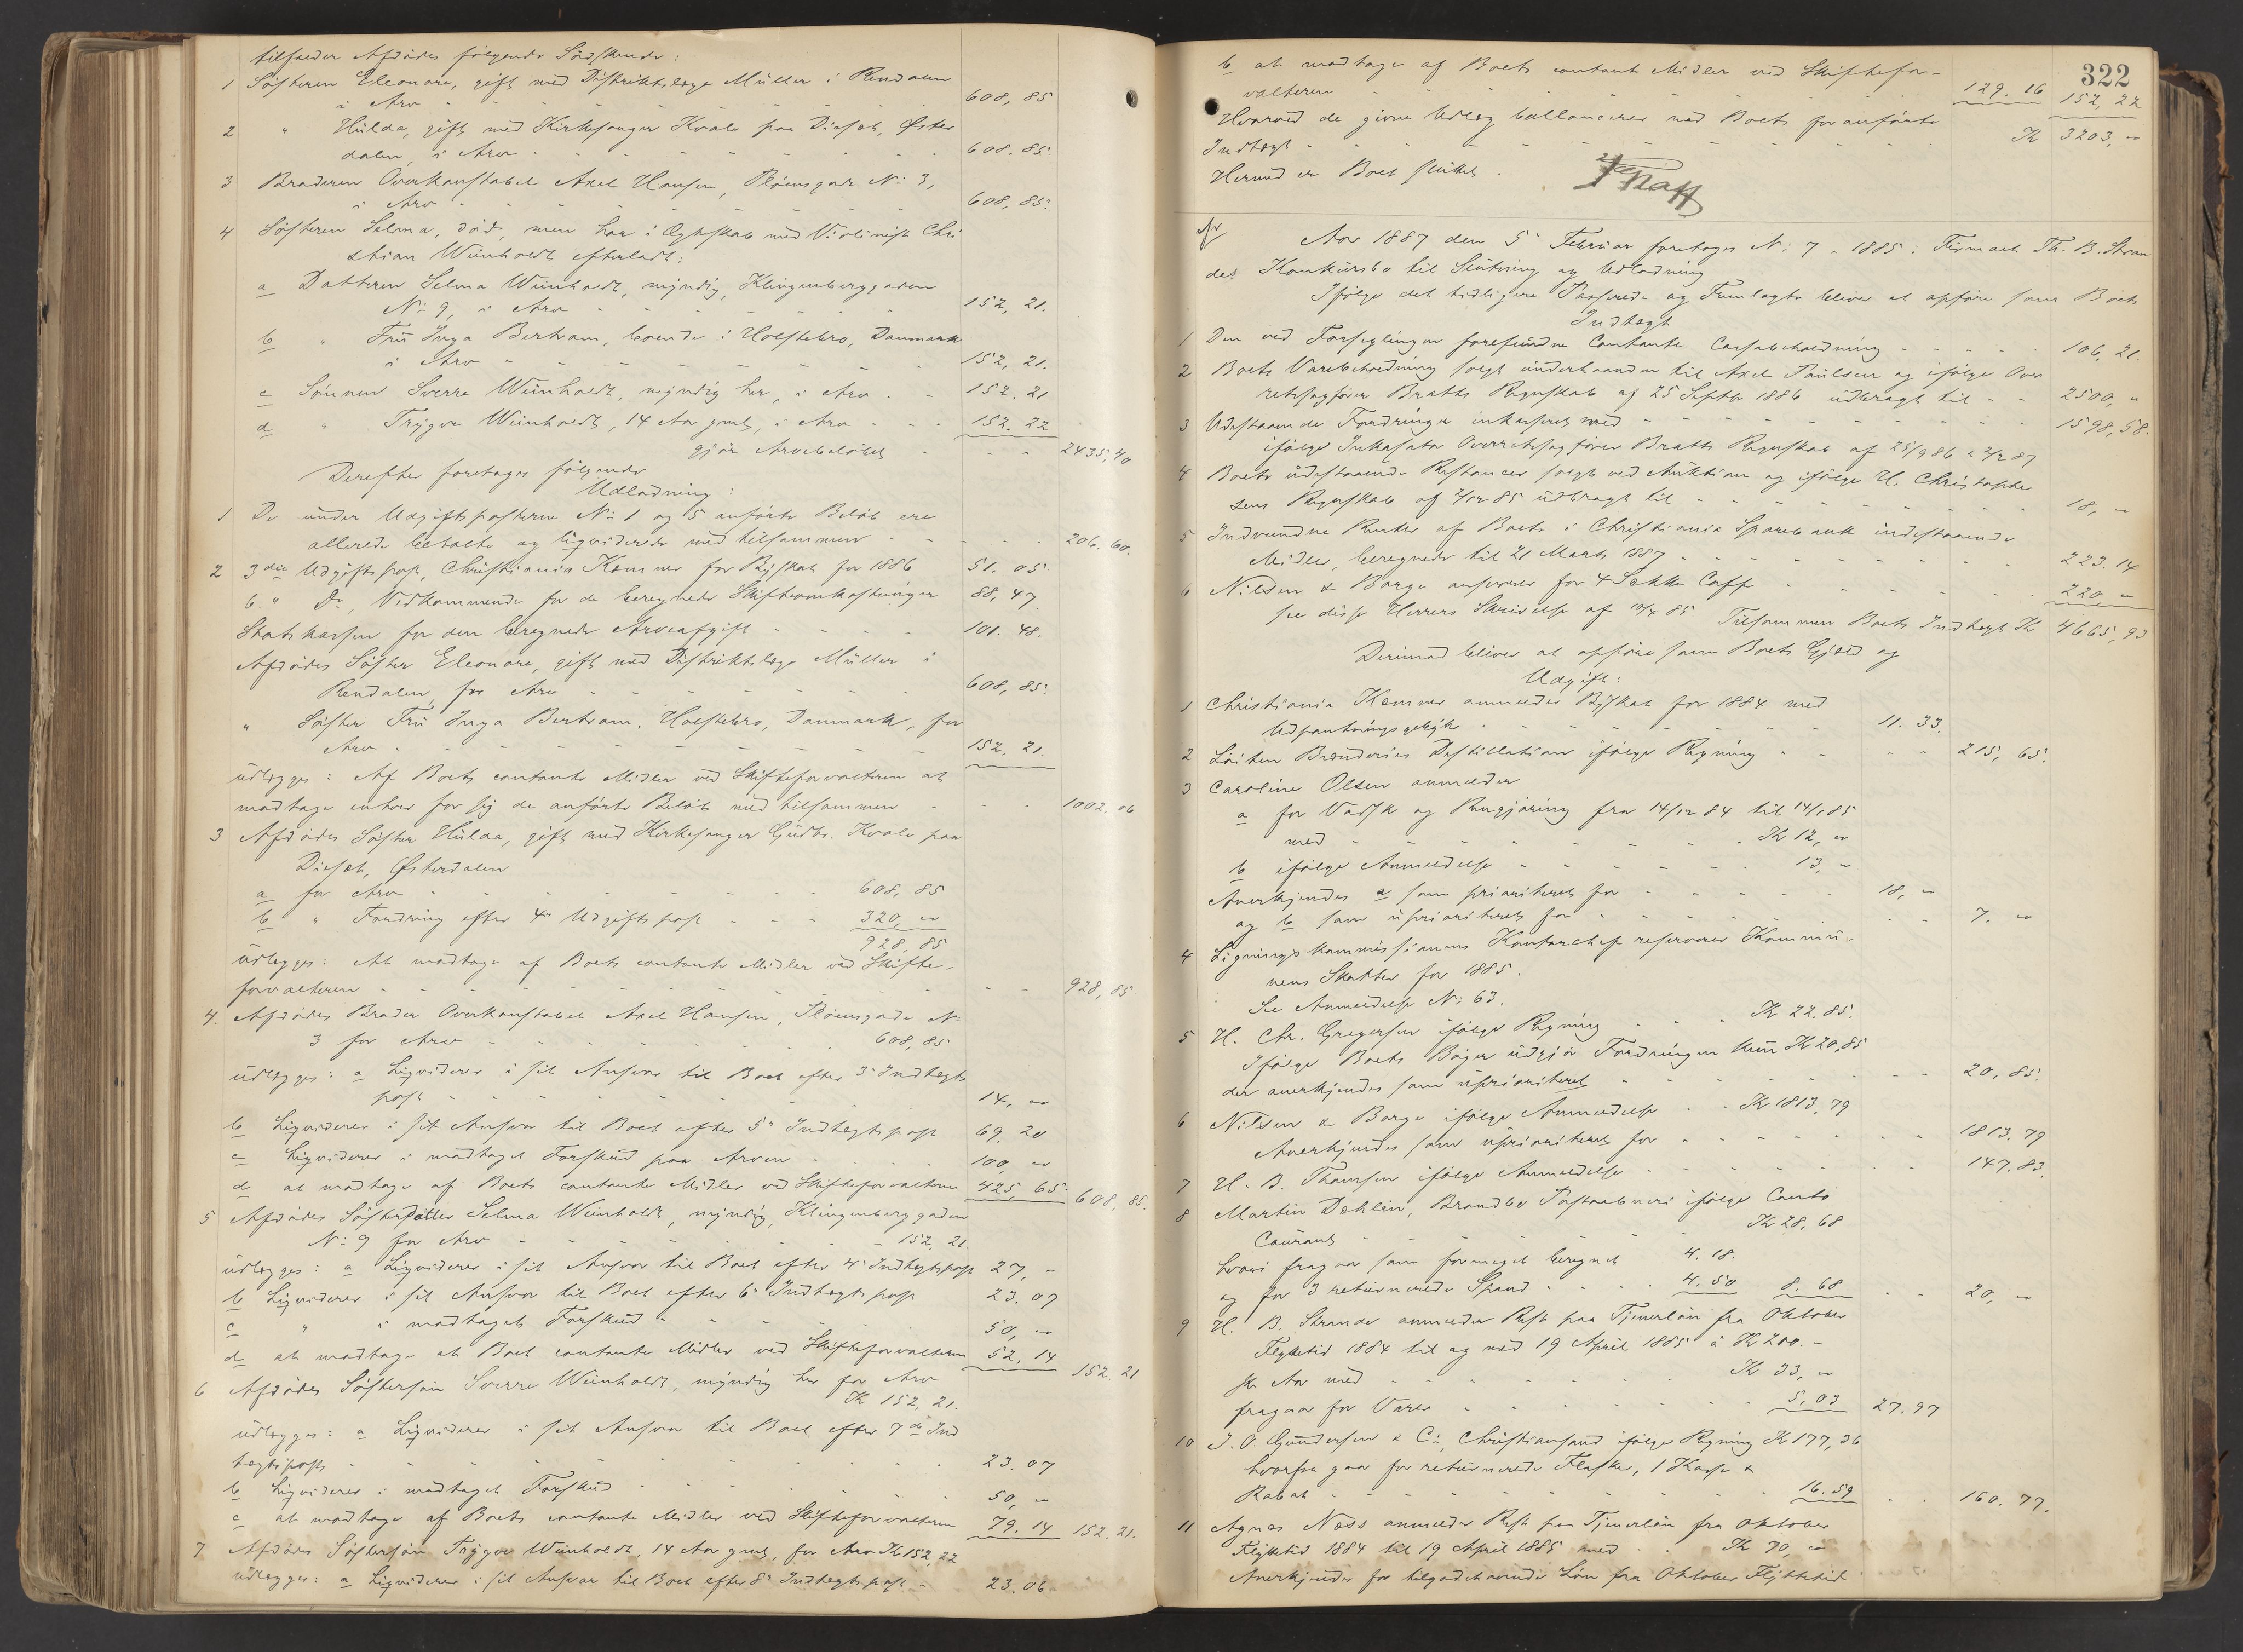 tilfalder Afdødes følgende Sødskende:
1 Søsteren Eleonore, gift med Distriktslæge Müller i Rendalen
i Arv - - - 608, 85
2 " Hulda, gift med Kirkesanger Kvale paa Diesæt, Øster
dalen, i Arv - - - 608. 85.
3 Broderen Overkonstabel Axel Hansen, Pløensgade No 3,
i Arv - - - 608, 85.
4 Søsteren Selma, død, men har i Ægteskab med Violinist Chri
stian Weinholdt efterladt:
a Datteren Selma Weinholdt, myndig, Klingenberggaden
No 9, i Arv - - - 152, 21.
b " Fru Inga Bertram, boende i Holstebro, Danmark
i Arv - - - 152, 21.
c Sønnen Sverre Weinholdt, myndig her, i Arv - - 152. 21
d " Trygve Weinholdt, 14 Aar gml, i Arv - - - 152. 22
gjør Arvebeløbet - - - 2435, 40
Derefter foretages følgende
Udlodning:
1 De under Udgiftsposterne No 1 og 5 anførte Beløb ere
allerede betalte og ligviderede med tilsammen - - - 206. 60.
2 3die Udgiftspost, Christiania Kemner for Byskat for 1886 51. 05
6." Do, Vedkommende for de beregnede Skifteomkostninger 88, 47
Statskassen for den beregnede Arveafgift - - - 101. 48.
Afdødes Søster Eleonore, gift med Distriktslæge Müller i
Rendalen, for Arv - - - 608, 85.
" Søster Fru Inga Bertram, Holstebro, Danmark, for
Arv - - - 152. 21.
udlægges: Af Boets contante Midler ved Skifteforvalteren at
modtage enhver for sig de anførte Beløb med tilsammen - - - 1002. 06
3 Afdødes Søster Hulda, gift med Kirkesanger Gudbr. Kvale paa
Diesæt, Østerdalen
a for Arv - - - 608, 85
b " Fordring efter 4de Udgiftspost - - - 320, "
928, 85
udlægges: At modtage af Boets contante Midler ved Skifte-
forvalteren - - - 928, 85.
4. Afdødes Broder Overkonstabel Axel Hansen, Pløensgade No
3 for Arv - - - 608, 85
udlægges: a Ligviderer i sit Ansvar til Boet efter 3die Indtægts
post - - - 14, "
b Ligviderer i sit Ansvar til Boet efter 5te Indtægtspost 69. 20
c Ligviderer i modtaget Forskud paa Arven - - - 100, "
d at modtage af Boets contante Midler ved Skifteforvalteren 425, 65. 608, 85.
5 Afdødes Søsterdatter Selma Weinholdt, myndig, Klingenberggaden
No 9 for Arv - - - 152, 21.
udlægges: a Ligviderer i sit Ansvar til Boet efter 4de Indtægtspost 27, -
b Ligviderer i sit Ansvar til Boet efter 6te Indtægtspost 23. 07
c " i modtaget Forskud - - - 50, "
d at modtage at Boet contante Midler ved Skifteforvalteren 52, 14 152. 21
6 Afdødes Søstersøn Sverre Weinholdt, myndig her for Arv
Kr 152, 21.
udlægges: a Ligviderer i sit Ansvar til Boet efter 7de Ind
tægtspost - - - 23. 07
b Ligviderer i modtaget Forskud - - - 50, "
c at modtage af Boets contante Midler ved Skifteforvalteren 79. 14 152, 21.
7 Afdødes Søstersøn Trygve Weinholdt, 14 Aar gml, for Arv Kr 152, 22
udlægges: a Ligviderer i sit Ansvar til Boet efter 8de Indtægtspost - 23. 06
322
b at modtage af Boets contante Midler ved Skiftefor-
valteren - - - 129. 16 152, 22
Hvorved de givne Udlæg ballancerer med Boets foranførte
Indtægt - - - Kr 3203, "
Hermed er Boet sluttet.
Aar 1887 den 5 Februar foretoges No 7 - 1885: Firmaet Th. B. Stran
des Konkursbo til Slutning og Udlodning
Ifølge det tidligere Passerede og Fremlagte bliver at opføre som Boets
Indtægt
1 Den ved Forseglingen forefundne Contante Cassabeholdning - - - 106, 21.
2 Boets Varebeholdning solgt underhaanden til Axel Paulsen og ifølge Over
retssagfører Bratts Regnskab af 25 Septbr 1886 udbragt til - - 2500, "
3 Udestaaende Fordringer inkasseret med - - - 1598, 58.
ifølge Inkasator Overretssagfører Bratts Regnskab af 25/9 86 & 2/2 87
4 Boets udestaaende Restancer solgt ved Auktion og ifølge H. Christophe
sens Regnskab af 2/12 85 udbragt til - - - 18, "
5 Indvundne Renter af Boets i Christiania Sparebank indestaaende
Midler, beregnede til 21 Marts 1887 - - - 223. 14
6 Nilsen & Borge ansvarer for 4 Sække Caffe - - - 220 "
see disse Herrers Skrivelse af 10/4 85 Tilsammen Boets Indtægt Kr 4665, 93
Derimod bliver at opføre som Boets Gjæld og
Udgift:
1 Christiania Kemner anmelder Byskat for 1884 med
Udpantningsgebyhr - - - 11. 33.
2 Løiten Brænderies Destillation ifølge Regning - - - 215, 65.
3 Caroline Olsen anmelder
a for Vadsk og Rengjøring fra 14/12 84 til 14/1 85
med - - - Kr 12, "
b ifølge Anmeldelse - - - 13, "
Anerkjendes a som prioriteret for - - - 18, "
og b som uprioriteret for - - - 7. "
4 Ligningskommissionens Kontorchef reserverer Kommu-
nens Skatter for 1885.
Se Anmeldelse No 63.
5 H. Chr. Gregersen ifølge Regning - - - Kr 22. 85.
Ifølge Boets Bøger udgjør Fordringen kun Kr 20,85
der anerkjendes som uprioriteret - - - 20, 85.
6 Nilsen & Borge ifølge Anmeldelse - - Kr 1813, 79
Anerkjendes som uprioriteret for - - - 1813. 79
7 H. B. Thomsen ifølge Anmeldelse - - - 147. 83.
8 Martin Dæhlin, Brandbu Postaabneri ifølge Conto
Courant - - - Kr 28, 68
hvori fragaar som formeget beregnet 4. 18.
og for 3 returnerede Spand - - - 4. 50 8. 68 - - 20, "
9 H. B. Strande anmelder Rest paa Tjenerløn fra Oktober
Flyttetid 1884 til og med 19 April 1885 à Kr 200. -
pr Aar med - - - Kr 33, "
fragaar for Varer - - - 5, 03 27. 97
10 J. O. Gundersen & Co, Christiansund ifølge Regning Kr 177, 36
hvorfra gaar for returnerede Flasker, 1 Kasse &
Rabat - - - 16. 59 - - 160. 77.
11 Agnes Næss anmelder Rest paa Tjenerløn fra Oktober
Flyttetid 1884 til 19 April 1885 med - - Kr 70, "
Anerkjendes for tilgodehavende Løn fra Oktober Flyttetid